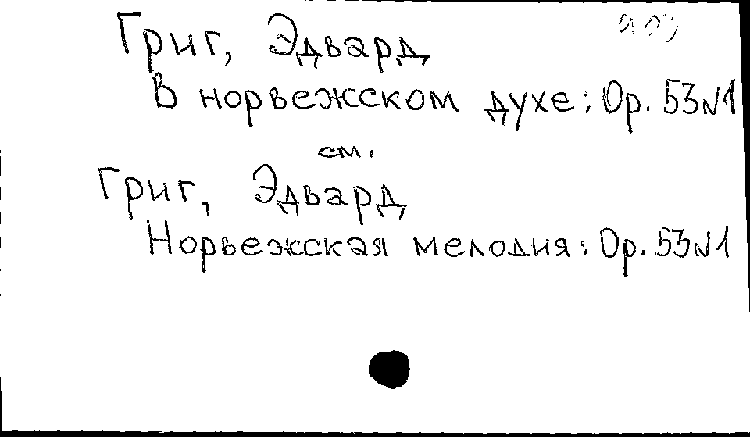 Григ, Эдвард
В норвежском духе: Op. 53 N1
см.
Григ, Эдвард
Норвежская мелодия: Op. 53 N1